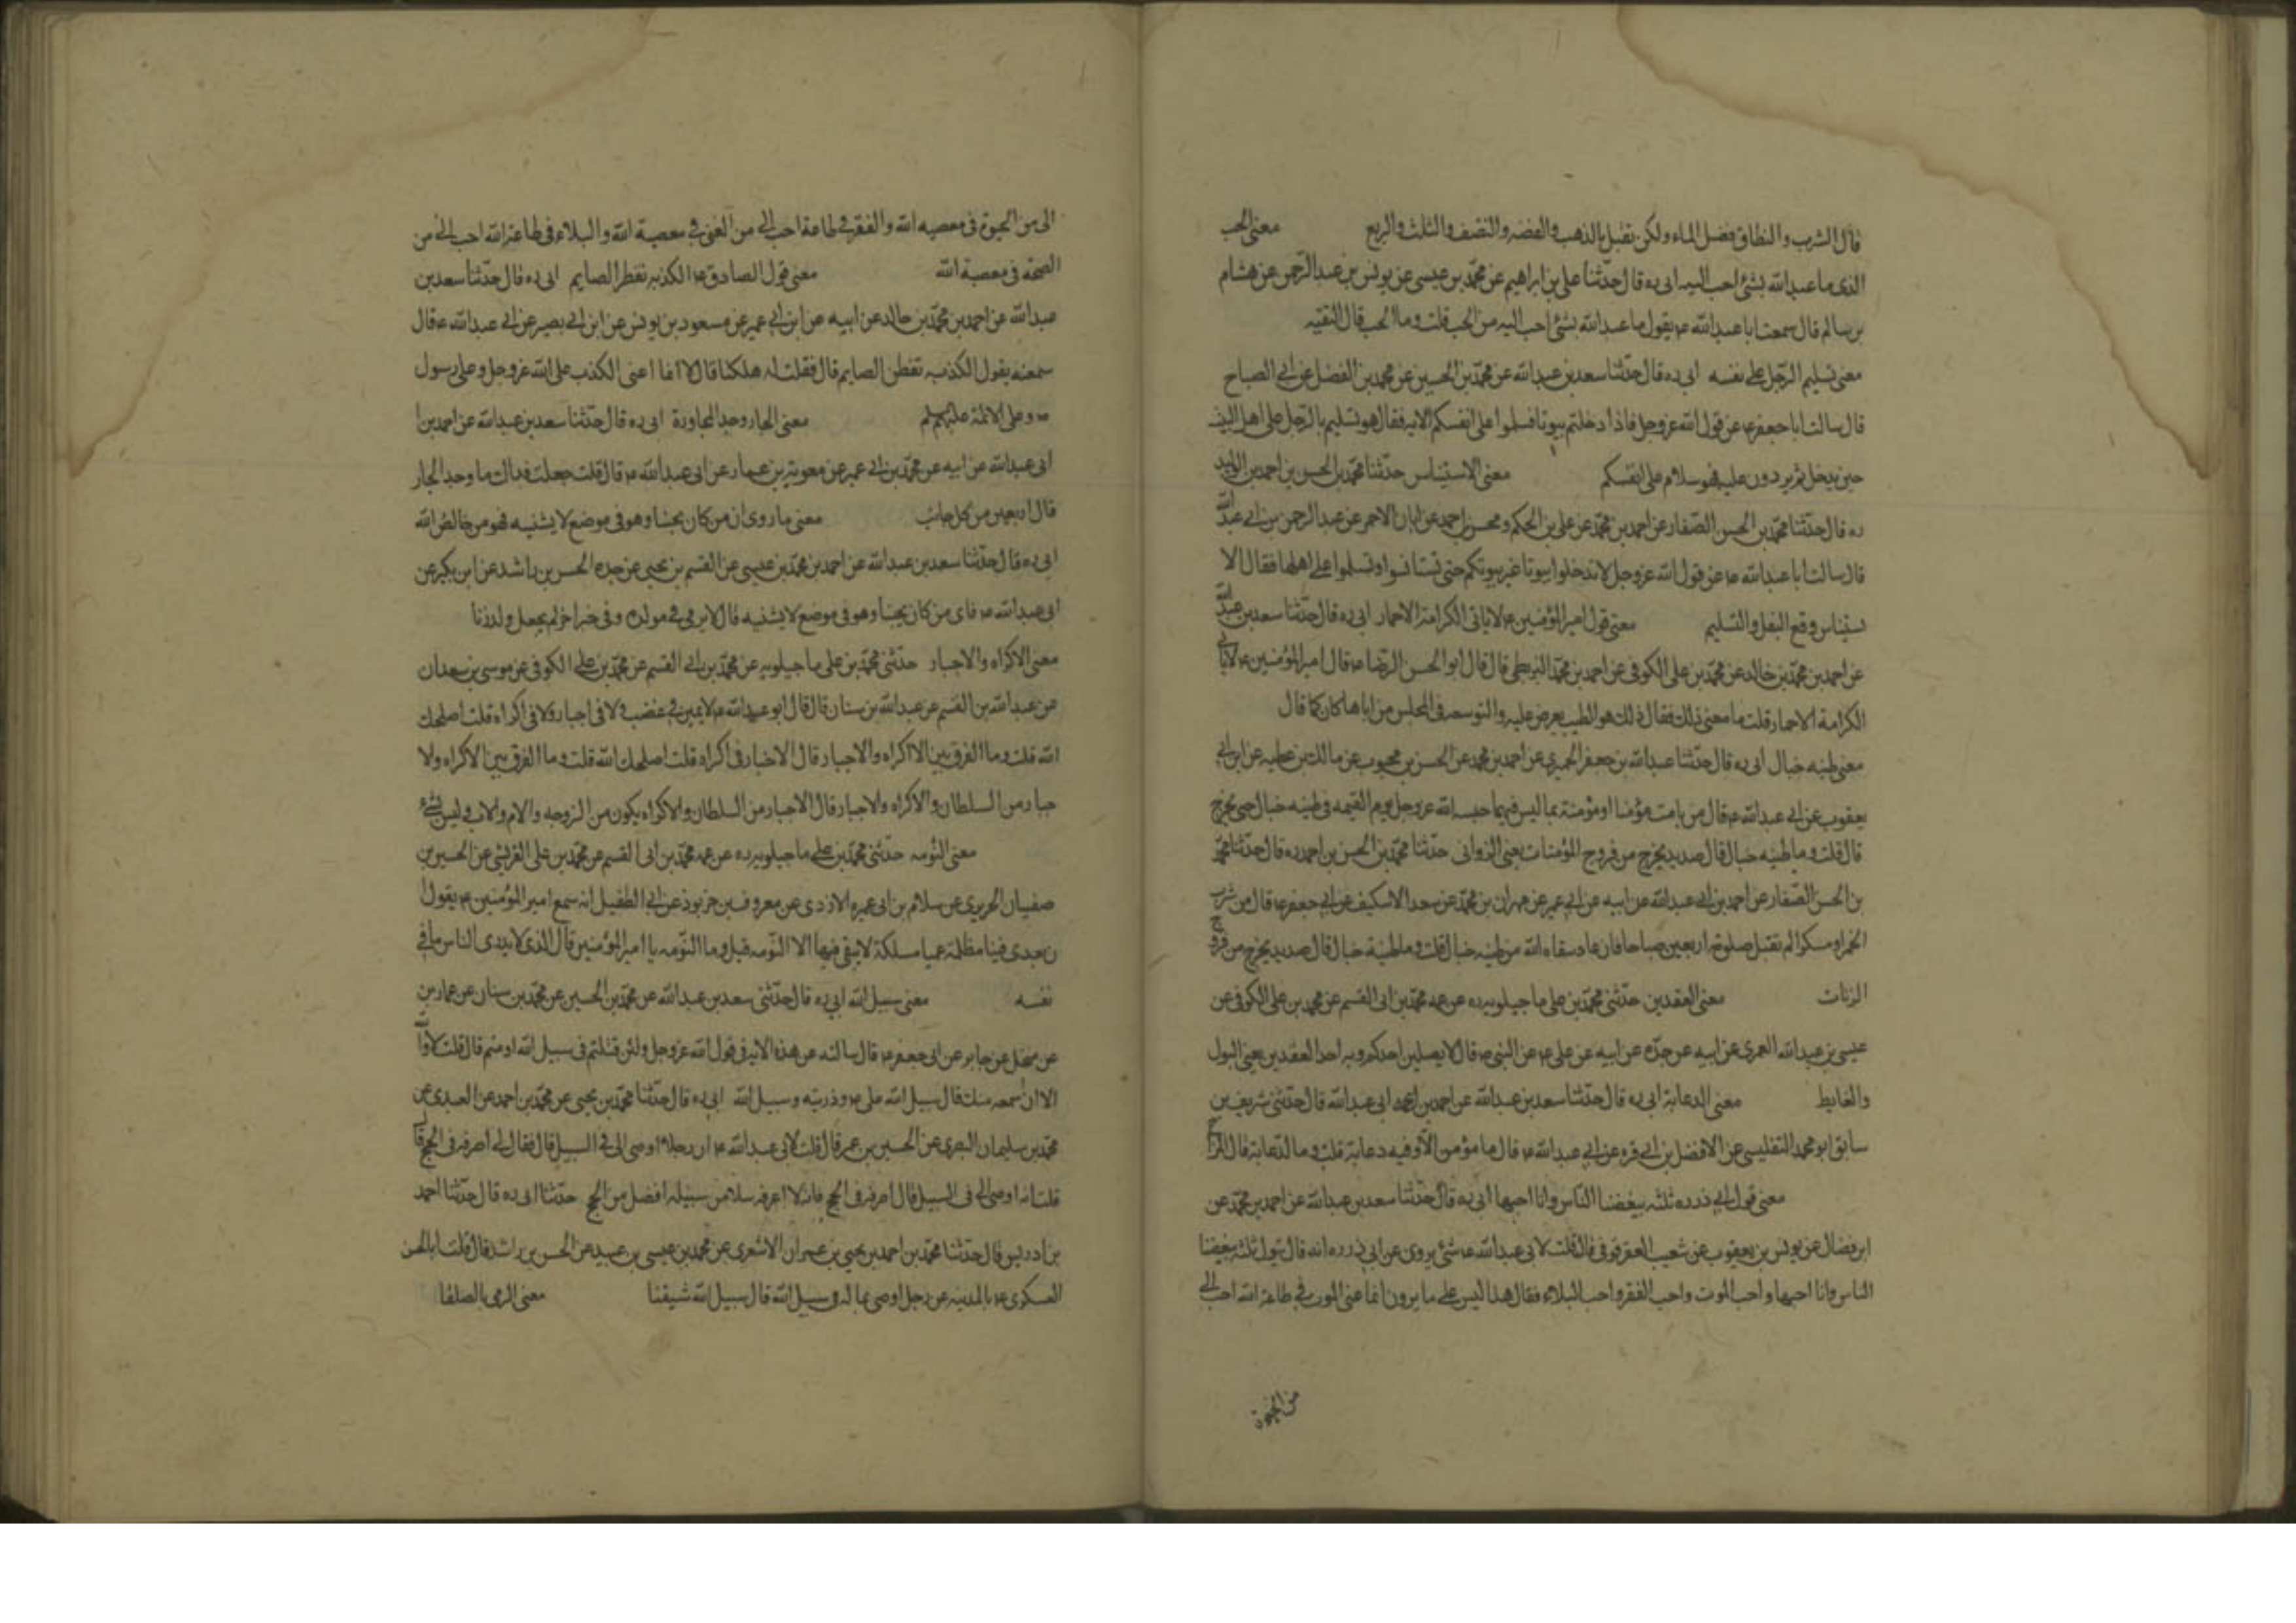 قال الشرب والنطاق فضل الماء ولكن تقبل بالذهب والفضه والنصف والثلث والربع معنى الخب
الذى ما عبد الله بشئ احب اليه ابى ره قال حدّثنا على بن ابراهيم عن محمّد بن عيسى عن يونس بن عبد الرّحمن عن هشام
بن سالم قال سمعت ابا عبد الله ع يقول ما عبد الله بشئ احب اليه من الخب قلت وما الخب قال التقيه
معنى تسليم الرّجل على نفسه ابى ره قال حدّثنا سعد بن عبد الله عن محمّد بن الحسين عن محمد بن الفضل عن ابى الصباح
قال سالت ابا جعفر ع عن قول الله عز وجل فاذا دخلتم بيوتا فسلموا على انفسكم الايه فقال هو تسليم بالرّجل على اهل البيت
حين يدخل ثم يردون عليه فهو سلام على انفسكم معنى الاستيناس حدّثنا محمّد بن الحسن بن احمد بن الوليد
ره قال حدّثنا محمّد بن الحسن الصّفار عن احمد بن محمّد عن على بن الحكم ومحسن بن احمد عن ابان الاحمر عن عبد الرحمن بن ابى عبد الله
قال سالت ابا عبد الله ع عن قول الله عز وجل لا تدخلوا بيوتا غير بيوتكم حتى تستانسوا وتسلموا على اهلها فقال الا
ستيناس وقع النعل والتسليم معنى قول امير المؤمنين ع لا ياتى الكرامة الا حمار ابى ره قال حدّثنا سعد بن عبد الله
عن احمد بن محمّد بن خالد عن محمّد بن على الكوفى عن احمد بن محمّد البزنطى قال قال ابو الحسن الرّضا ع قال امير المؤمنين ع لا يا
الكرامة الا حمار قلت ما معنى ذلك فقال ذلك هو الطيب يعرض عليه والتوسعه فى المجلس من اباها كان كما قال
معنى طينه خبال ابى ره قال حدّثنا عبد الله بن جعفر الحميرى عن احمد بن محمد عن الحسن بن محبوب عن مالك بن عطيه عن ابن ابى
يعقوب عن ابى عبد الله ع قال من باهت مؤمنا او مؤمنة بما ليس فيهما حبسه الله عز وجل يوم القيمه فى طينه خبال حتى يخرج
قال قلت وما طينه خبال قال صديد يخرج من فروج المؤمنات يعنى الزوانى حدّثنا محمّد بن الحسن بن احمد ره قال حدّثنا محمّد
بن الحسن الصّفار عن احمد بن ابى عبد الله عن ابيه عن ابى عمير عن مهران بن محمّد عن سعد الاسكيف عن ابى جعفر ع قال من شرب
الخمر او مسكرا لم تقبل صلوته اربعين صباحا فان عاد سقاه الله من طينه خبال قلت وما طينة خبال قال صديد يخرج من فروج
الزنات معنى العقدين حدّثنى محمّد بن على ماجيلويه ره عن عمه محمّد بن ابى القسم عن محمد بن على الكوفى عن
عيسى بن عبد الله العمرى عن ابيه عن جدّه عن ابيه عن على ع عن النبى ص قال لا يصلين احدكم وبه احد العقدين يعنى البول
والغايط معنى الدعابة ابى ره قال حدّثنا سعد بن عبد الله عن احمد بن ابى عبد الله قال حدّثنى شريف بن
سابق ابو محمد التفليسى عن الافضل بن ابى قره عن ابى عبد الله ع قال ما مؤمن الّا وفيه دعابة قلت وما الدّعابة قال المزاح
معنى قول ابى ذر ره ثلثه يبغضنا النّاس وانا احبها ابى ره قال حدّثنا سعد بن عبد الله عن احمد بن محمّد عن
ابن فضال عن يونس بن يعقوب عن شعيب العقرقوفى قال قلت لابى عبد الله ع شئ يروى عن ابى ذر ره انه قال يقول ثلثه يبغضنا
الناس وانا احبها واحب الموت واحب الفقر واحب البلاء فقال هذا ليس على ما يرون انما عنى الموت فى طاعة الله احب الى
من الحيوة
الى من الحيوة فى معصيه الله والفقر فى طاعة احب الى من الغنى فى معصية الله والبلاء فى طاعة الله احب الى من
الصحّة فى معصية الله معنى قول الصادق ع الكذبه تفطر الصايم ابى ره قال حدّثنا سعد بن
عبد الله عن احمد بن محمّد بن خالد عن ابيه عن ابن ابى عمير عن مسعود بن يونس عن ابن ابى بصير عن ابى عبد الله ع قال
سمعته يقول الكذبه تفطر الصايم قال فقلت له هلكنا قال لا انما اعنى الكذب على الله عز وجل وعلى رسول
ص وعلى الائمّة عليهم لم معنى الجار وحد المجاورة ابى ره قال حدّثنا سعد بن عبد الله عن احمد بن ا
ابى عبد الله عن ابيه عن محمّد بن ابى عمير عن معويه بن عمار عن ابى عبد الله ع قال قلت جعلت فداك ما وحد الجار
قال اربعين من كل جانب معنى ما روى ان من كان يحبنا وهو فى موضع لا يشنيه فهو من خالص الله
ابى ره قال حدّثنا سعد بن عبد الله عن احمد بن محمّد بن عيسى عن القسم بن يحيى عن جده الحسن بن راشد عن ابن بكير عن
ابى عبد الله ع قاى من كان يحبنا وهو فى موضع لا يشنيه قال لا يرمى فى مولده وفى خبر اخر لم يجعل ولد زنا
معنى الاكراه والاجبار حدّثنى محمّد بن على ماجيلويه عن محمّد بن ابى القسم عن محمّد بن على الكوفى عن موسى بن سعدان
عن عبد الله بن القسم عن عبد الله بن سنان قال قال ابو عبد الله ع لا يمين فى غضب ولا فى اجبار ولا فى اكراه قلت اصلحك
الله قلت وما الفرق بين الاكراه والاجبار قال الاخبار فى اكراه قلت اصلحك الله قلت وما الفرق بين الاكراه ولا
جبار من السلطان والاكراه ولاجبار قال الاجبار من السلطان والاكراه يكون من الزوجه والام والاب وليس بشئ
معنى النّومه حدّثنى محمّد بن على ماجيلويه ره عن عمه محمّد بن ابى القسم عن محمّد بن على القريشى عن الحسين بن
صفيان الحريرى عن سلام بن ابى عميره الازدى عن معروف بن خربوذ عن ابى الطفيل انه سمع امير المؤمنين ع يقول ا
ن بعدى فينا مظلمة عميا مسلكة لا يبقى فيها الا النّومه قيل وما النّومه يا امير المؤمنين قال الذى لا يدرى الناس ما فى
نفسه معنى سبيل الله ابى ره قال حدّثنى سعد بن عبد الله عن محمّد بن الحسين عن محمّد بن سنان عن عمار بن
عن منخل عن جابر عن ابى جعفر ع قال سالته عن هذه الايه فى قول الله عز وجل ولئن قتلتم فى سبيل الله او متم قال قلت لا والله
الا ان اسمعه منك قال سبيل الله على ع وذريّته وسبيل الله ابى ره قال حدّثنا محمّد بن يحيى عن محمّد بن احمد عن العبدى عن
محمّد بن سليمان البصرى عن الحسين بن عمر قال قلت لابى عبد الله ع ان رجلا اوصى الى فى السبيل قال فقال لى اصرفه فى الحج قال
قلت انه اوصى الى فى السبيل قال اصرفه فى الحج فانى لا اعرف سبيلا من سبيله افضل من الحج حدّثنا ابى ره قال حدّثنا احمد
بن ادريس قال حدّثنا محمّد بن احمد بن يحيى بن عمران الاشعرى عن محمد بن عيسى بن عبيد عن الحسن بن راشد قال قلت ابا الحسن
العسكرى ع بالمدينه عن رجل اوصى بماله فى سبيل الله قال سبيل الله شيعتنا معنى الرمى بالصلعا